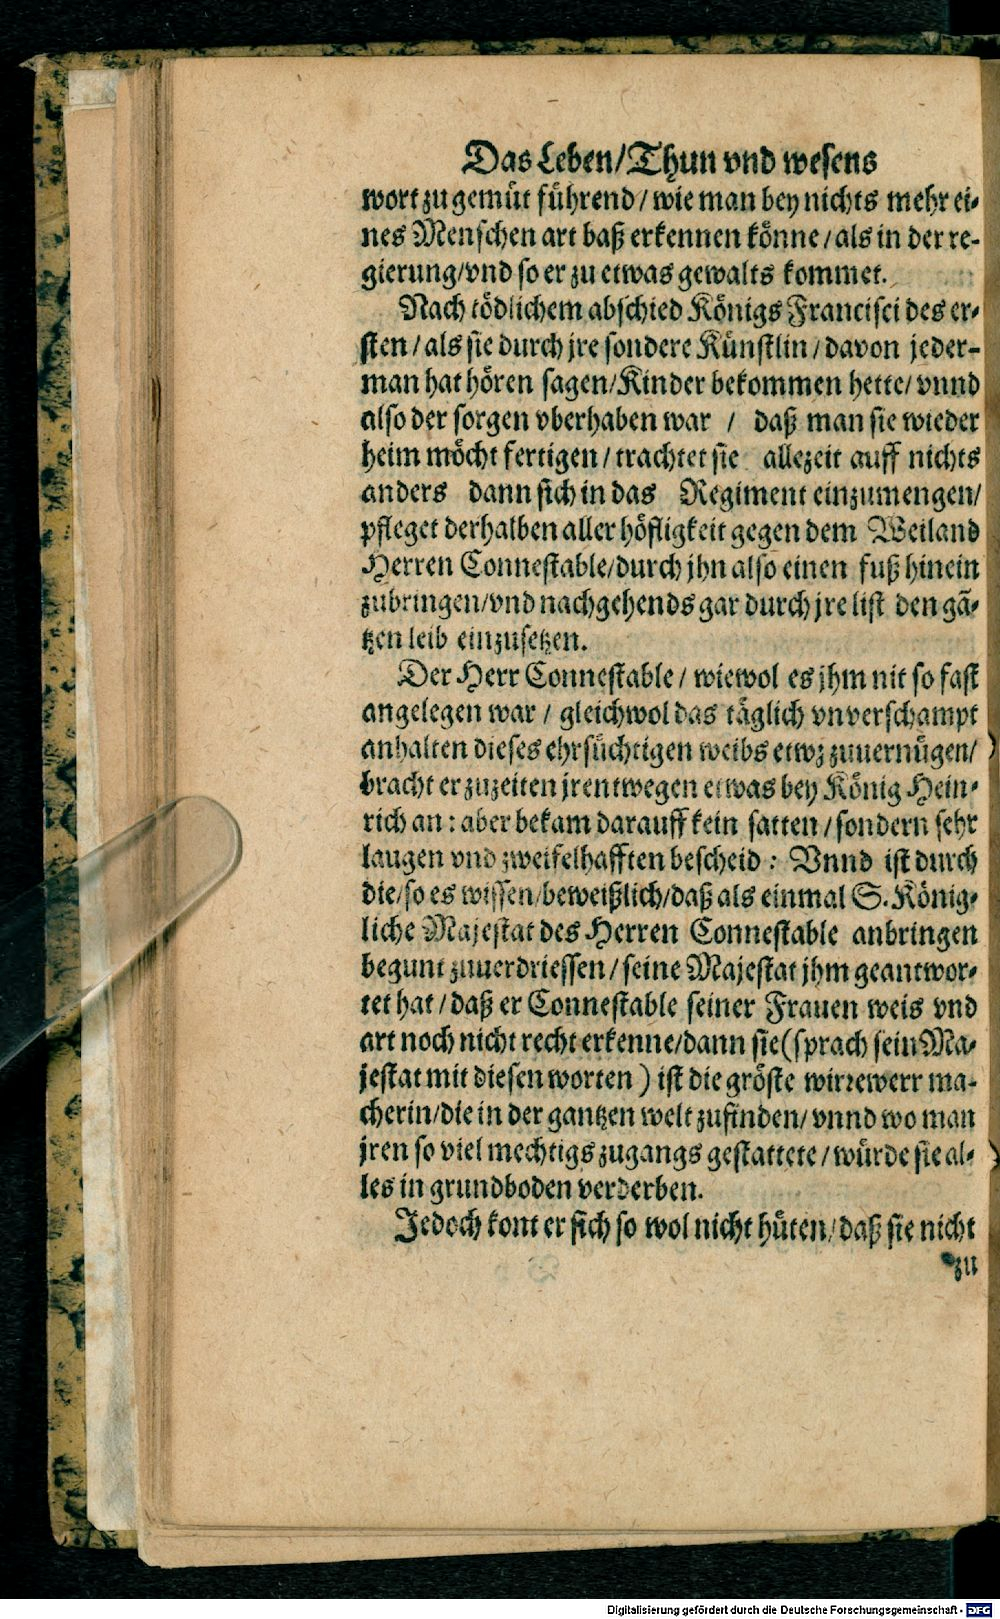 Das Leben/Thun vnd wesens
wort zu gemüt führend/ wie man bey nichts mehr ei-
nes Menschen art baß erkennen könne/als in der re-
gierung/vnd so er zu etwas gewalts kommet.
Nach tödlichem abschied Königs Francisci des er-
sten/ als sie durch jre sondere Künstlin/ davon jeder-
man hat hören sagen/Kinder bekommen hette/ vnnd
also der sorgen vberhaben war / daß man sie wieder
heim möcht fertigen/ trachtet sie allezeit auff nichts
anders dann sich in das Regiment einzumengen/
pfleget derhalben aller höfligkeit gegen dem Weiland
Herren Connestable/durch jhn also einen fuß hinein
zubringen/vnd nachgehends gar durch jre list den gã-
tzen leib einzusetzen.
Der Herr Connestable/ wiewol es jhm nit so fast
angelegen war/ gleichwol das täglich vnverschampt
anhalten dieses ehrsüchtigen weibs etwz zuuernügen/
bracht er zuzeiten jrentwegen etwas bey König Hein-
rich an: aber bekam darauff kein satten/ sondern sehr
laugen vnd zweifelhafften bescheid: Vnnd ist durch
die/so es wissen/beweißlich/daß als einmal S. König-
liche Majestat des Herren Connestable anbringen
begunt zuuerdriessen/ seine Majestat jhm geantwor-
tet hat/ daß er Connestable seiner Frauen weis vnd
art noch nicht recht erkenne/dann sie (sprach sein Ma-
jestat mit diesen worten) ist die gröste wirrewerr ma-
cherin/die in der gantzen welt zufinden/ vnnd wo man
jren so viel mechtigs zugangs gestattete/ würde sie al-
les in grundboden verderben.
Jedoch kont er sich so wol nicht hüten/daß sie nicht
zu
Digitalisierung gefördert durch die Deutsche Forschungsgemeinschaft - DFG